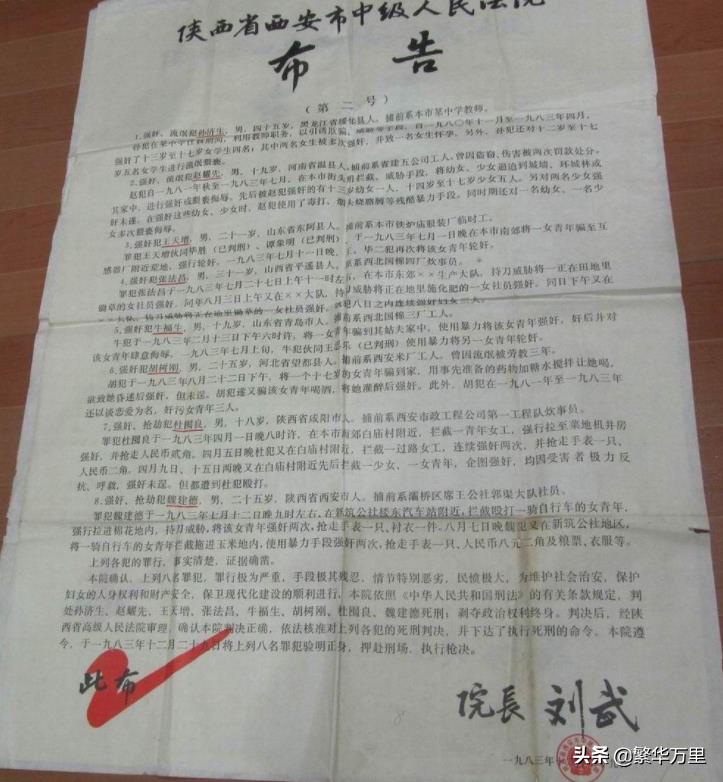 陕西省西安市中级人民法院
布告
（第二号）
1.强奸、流氓犯孙济生，男，四十五岁，黑龙江省绥化县人，捕前系本市某中学教师。
孙犯在某中学任教期间，利用教师职务，以引诱欺骗、威胁等手段，自一九八〇年十一月至一九八三年四月，
强奸了十三岁至十七岁女学生四名；其中两名女生被多次强奸，并致一名女生怀孕。另外，孙犯还对十二岁至十七
岁五名女学生进行流氓猥亵。
2.强奸、流氓犯赵耀先，男，十九岁，河南省温县人，捕前系省建五公司工人。曾因盗窃、伤害被两次罚款处分。
赵犯自一九八一年秋至一九八三年七月，在本市街头拦截、威胁手段，将幼女、少女逼迫到城墙、环城林或
其家中，进行强奸或猥亵侮辱。先后被赵犯强奸的有十三岁幼女一人，十四岁至十七岁少女五人。另对两名少女强
奸未遂。在强奸这些幼女、少女时，赵犯使用了毒打、烟头烧胳膊等残酷暴力手段。同时期还对一名幼女、一名少
女多次猥亵侮辱。
3.强奸犯王天增，男，二十一岁，山东省东阿县人，捕前系本市铁炉庙服装厂临时工。
罪犯王天增伙同华胜（已判刑）、谭象明（已判刑），于一九八三年七月一日晚在本市南郊将一女青年骗至互
感器厂附近菜地，强行轮奸。一九八三年七月十一日晚，王、毕二犯再次将该女青年轮奸。
4.强奸犯张法昌，男，三十一岁，山西省平遥县人，捕前系西北国棉四厂炊事员。
罪犯张法昌于一九八三年七月二十七日上午十一时左右，在本市东郊××生产大队，持刀威胁将一正在田地里
锄草的女社员强奸。同年八月三日上午又在××大队，持刀威胁将正在地里施化肥的一女社员强奸。同日下午又在
××大队，持刀威胁将正在地里锄草的一女社员强奸，张犯八日之内连续强奸妇女三人。
5.强奸犯牛福生，男，十九岁，山东省青岛市人，捕前系西北国棉三厂工人。
牛犯于一九八三年二月三日下午六时许，将一女青年骗到其姑夫家中，使用暴力将该女青年强奸，奸后并对
该女青年肆意侮辱。一九八三年七月上旬，牛犯伙同王乐（已判刑）使用暴力将另一女青年轮奸。
6.强奸犯胡柯刚，男，二十五岁，河北省望都县人，捕前系西安米厂工人，曾因流氓被劳教三年。
胡犯于一九八三年八月二十二日下午，将一个十七岁的女青年骗到家，用事先准备的药物加糖水搅拌让她喝，
欲致她昏迷后强奸，但未逞。胡犯遂又骗该女青年喝酒，将她灌醉后强奸。此外，胡犯在一九八一年至一九八三年
还以谈恋爱为名，奸污女青年三人。
7.强奸、抢劫犯杜囤良，男，十八岁，陕西省咸阳市人，捕前系西安市政工程公司第一工程队炊事员。
罪犯杜囤良于一九八三年四月一日晚八时许，在本市南郊白庙村附近，拦截一青年女工，强行拉至菜地机井房
强奸，并抢走人民币贰角。四月五日晚杜犯又在白庙村附近，拦截一过路女工，连续强奸两次，并抢走手表一只、
人民币二角。四月九日、十五日两晚又在白庙村附近先后拦截一少女、一女青年，企图强奸，均因受害者极力反
抗、呼救，强奸未逞。但都遭到杜犯殴打。
8.强奸、抢劫犯魏建德，男，二十五岁，陕西省西安市人，捕前系灞桥区席王公社郭渠大队社员。
罪犯魏建德于一九八三年七月十二晚九时左右，在新筑公社陆东汽车站附近，拦截殴打一骑自行车的女青年，
强行拉进棉花地内，持刀威胁，将该女青年强奸两次，抢走手表一只、衬衣一件。八月七日晚魏犯又在新筑公社地区，
将一骑自行车的女青年拦截拖进玉米地内，使用暴力手段强奸两次，抢走手表一只、人民币八元二角及粮票、衣服等。
上列各犯的罪行，事实清楚，证据确凿。
本院确认，上列八名罪犯，罪行极为严重，手段极其残忍，情节特别恶劣，民愤极大，为维护社会治安，保护
妇女的人身权利和财产安全，保卫现代化建设的顺利进行，本院依照《中华人民共和国刑法》的有关条款规定，判
处孙济生、赵耀先、王天增、张法昌、牛福生、胡柯刚、杜囤良、魏建德死刑；剥夺政治权利终身。判决后，经陕
西省高级人民法院审理，确认本院判决正确，依法核准对上列各犯的死刑判决，并下达了执行死刑的命令。本院遵
令，于一九八三年十二月二十九日将上列八名罪犯验明正身，押赴刑场，执行枪决。
此布
院长 刘武
一九八三年
头条 @繁华万里